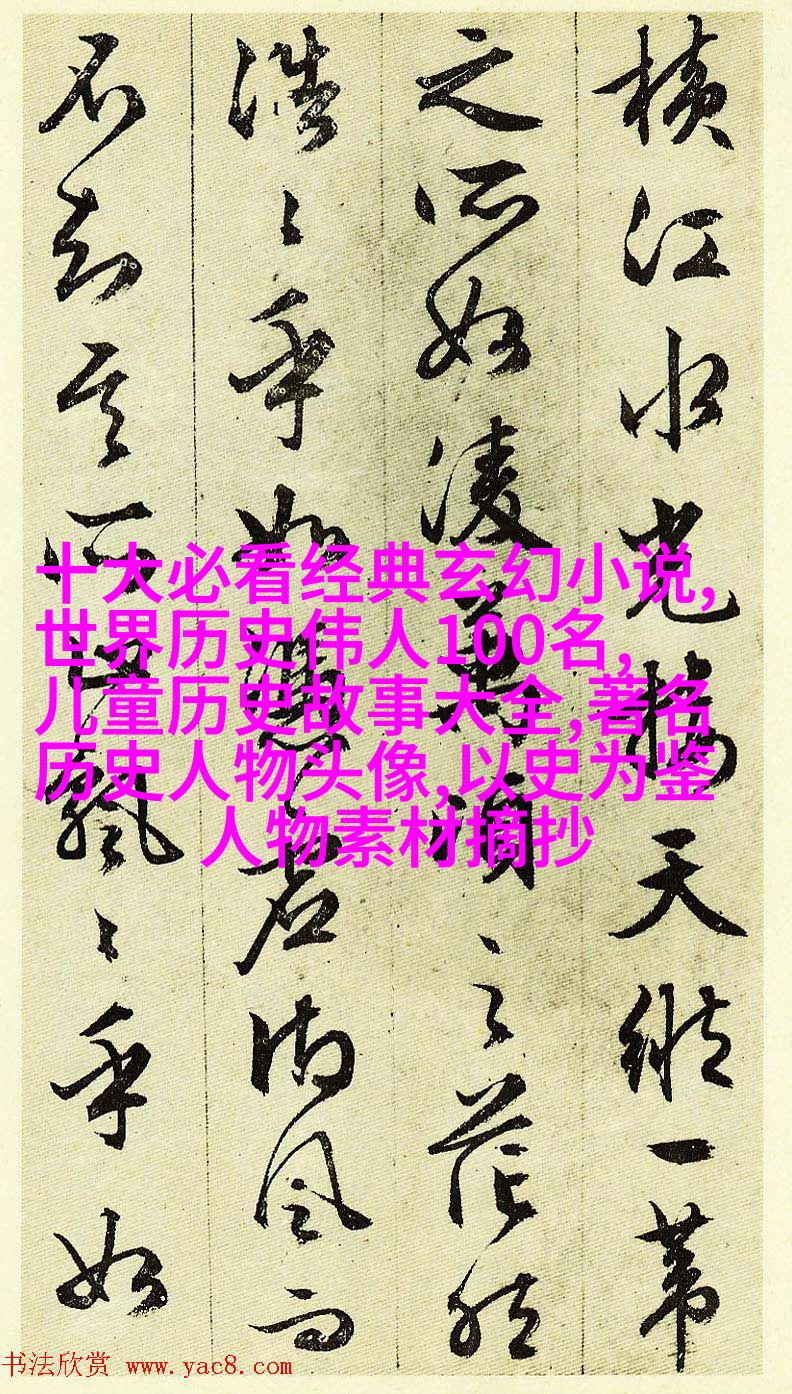 橫江水光接天縱一葦
之所如凌萬頃之茫然
浩〻乎如馮虛御風而
不知其所止飄〻乎如
十大必看经典玄幻小说,
世界历史伟人100名,
儿童历史故事大全,著名
历史人物头像,以史为鉴
人物素材摘抄
书法欣赏 www.yac8.com